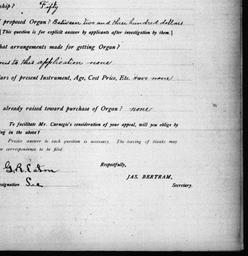 ship? Fifty
proposed Organ? Between two and three hundred dollars
[This question is for explicit answer by applicants after investigation by them.]
hat arrangements made for getting Organ?
to this application none
lars of present Instrument, Age, Cost Price, Etc. have none
already raised toward purchase of Organ? none
To facilitate Mr. Carnegie's consideration of your appeal, will you oblige by
ing in the above?
Precise answer to each question is necessary. The leaving of blanks may
correspondence to be filed
Respectfully,
JAS. BERTRAM,
Secretary.
esignation